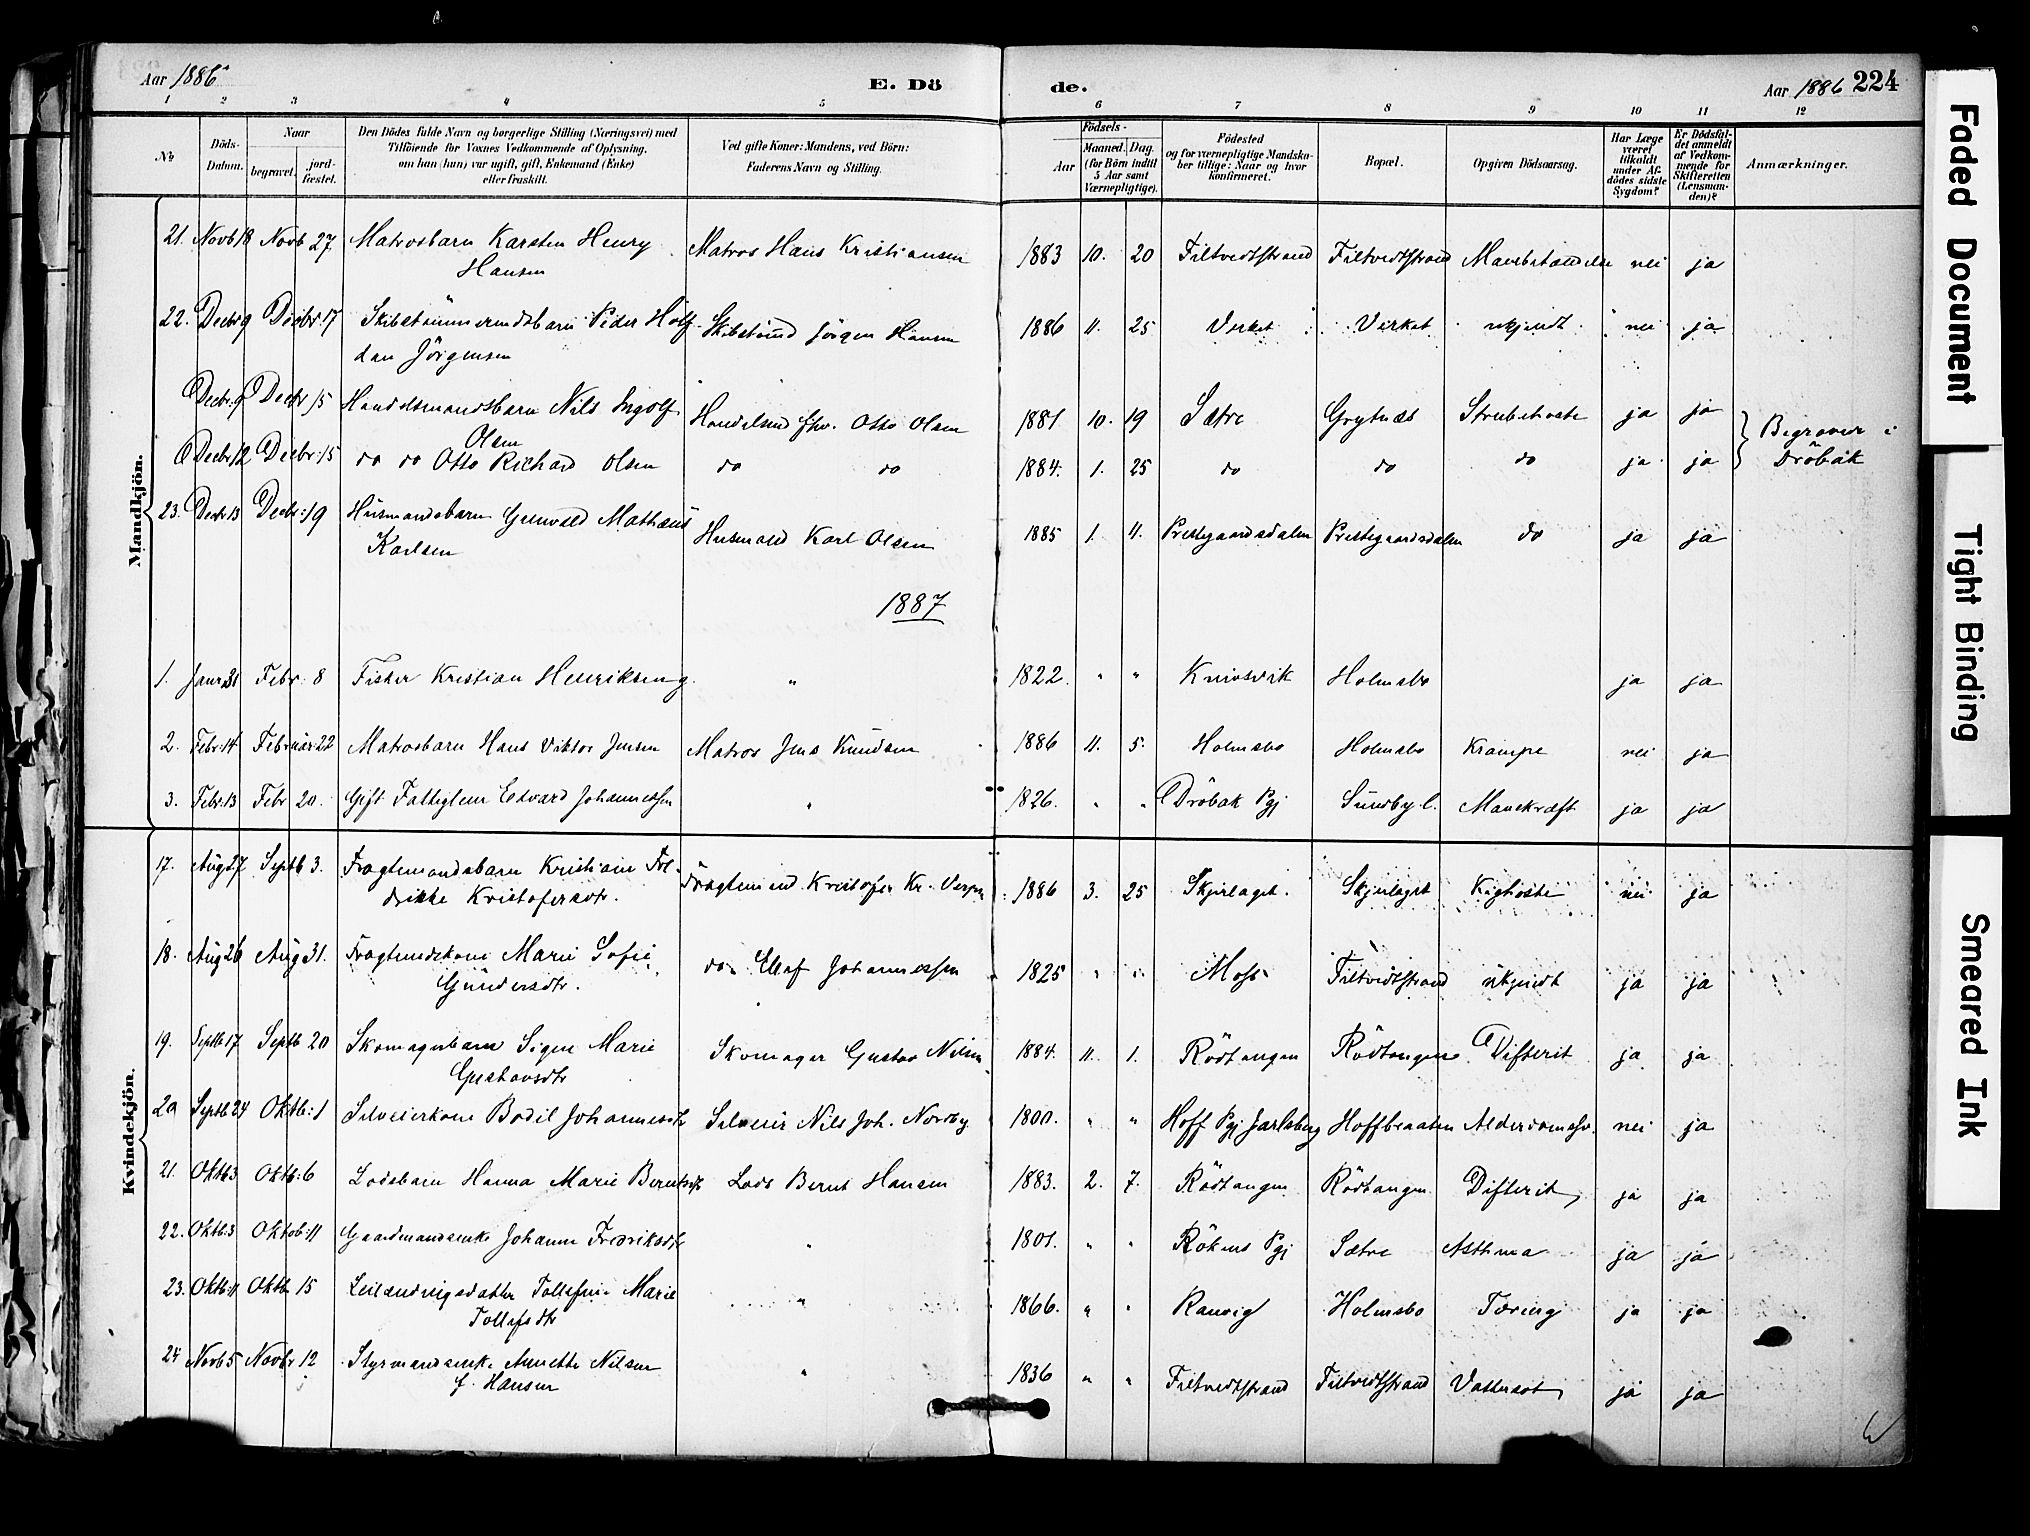 Aar 1886
E. Dö
de.
Aar 1886 224
1 2 3 4 5 6 7 8 9 10 11 12
No
Döds-
Datum.
Naar
begravet.
jord-
fæstet.
Den Dödes fulde Navn og borgerlige Stilling (Næringsvei) med
Tilföiende for Voxnes Vedkommende af Oplysning,
om han (hun) var ugift, gift, Enkemand (Enke)
eller fraskilt.
Ved gifte Koner: Mandens, ved Börn:
Faderens Navn og Stilling.
Födsels-
Aar
Maaned. Dag.
(for Börn indtil
5 Aar samt
Værnepligtige).
Födested
og for værnepligtige Mandska-
ber tillige: Naar og hvor
konfirmeret.
Bopæl.
Opgiven Dödsaarsag.
Har Læge
været
tilkaldt
under Af-
dödes sidste
Sygdom?
Er Dödsfal-
det anmeldt
af Vedkom-
mende for
Skifteretten
(Lensman-
den)?
Anmærkninger.
Mandkjön.
21. Novb 18 Novb 27 Matrosbarn Karsten Henry Matros Hans Kristiansen 1883 10. 20 Filtvedtstrand Filtvedtstrand nei ja
Hansen
22. Decbr 9 Decbr. 17 Peder Half- Jörgen Hansen 1886 11. 25 Verket Verket ukjendt nei ja
dan Jörgensen
Decbr. 9 Decbr 15 Handelsmandsbarn Nils Ingolf Handelsmd Otto Olsen 1881 10. 19 Sætre Grytnæs Strubehoste ja ja Begraves i
Olsen
Decbr 12 Decbr: 15 do do Otto Richard Olsen do do 1884. 1. 25 do do do ja ja Dröbak
23. Decbr 13 Decbr: 19 Husmandsbarn Mathæus Husmand Karl Olsen 1885 1. 11. Prestegaardsdalen Prestegaardsdalen do ja ja
Karlsen
1887
1. Januar 31 Febr. 8 Fisker Kristian Henriksen g. " 1822. " " Knivsvik Holmsbo ja ja
2. Febr: 14 Februar 22 Matrosbarn Hans Viktor Jensen Matros Jens Knudsen 1886 11. 5. Holmsbo Holmsbo Krampe nei ja
3. Febr. 13 Febr 20. Gift Fattiglem Edvard Johannessen " 1826. " " Dröbak Pgj Sundby Mavekræft ja ja
Kvindekjön.
17. Aug 27 Septb 3. Fragtemandsbarn Kristiane Fre- Fragtemand Kristofer Kr. 1886 3. 25 Skjerlaget. Skjerlaget Kighoste nei ja
drikke Kristofersdtr.
18. Aug 26 Aug 31. Fragtemdskone Marie Sofie do. Johannessen 1825 " " Moss Filtvedtstrand ukjendt ja ja
Gundersdtr.
19. Septb 17 Septb 20 Skomagerbarn Signe Marie Skomager Gustav Nilsen 1884. 11. 1. Rödtangen Rödtangen Difterit ja ja
Gustavsdtr
20 Septb. 24 Oktb: 1 Selveierkone Bodil Johannesdtr Selveier Nils Joh. Nordby 1800. " " Hoff Pgj. Jarlsberg Hoffbraaten nei ja
21. Oktb 3 Oktb: 6 Lodsbarn Hanna Marie Berntsdtr Lods Bernt Hansen 1883. 2. 7. Rödtangen Rödtangen Difterit ja ja
22. Oktb: 3 Oktob: 11 Gaardmandsenke Johanne Fredriksdtr " 1801. " " Rökens Pgj Sætre Asthma ja ja
23. Oktb: 11 Oktb 15 Leilændingsdatter Tollefine Marie " 1866. " " Ranvig Holmsbo Tæring ja ja
Tollefsdtr
24 Novb 5 Novbr 12 Styrmandsenke Annette Nilsen " 1836 " " Filtvedtstrand Filtvedtstrand Vattersot ja ja
f. Hansen
Faded Document
Tight Binding
Smeared Ink